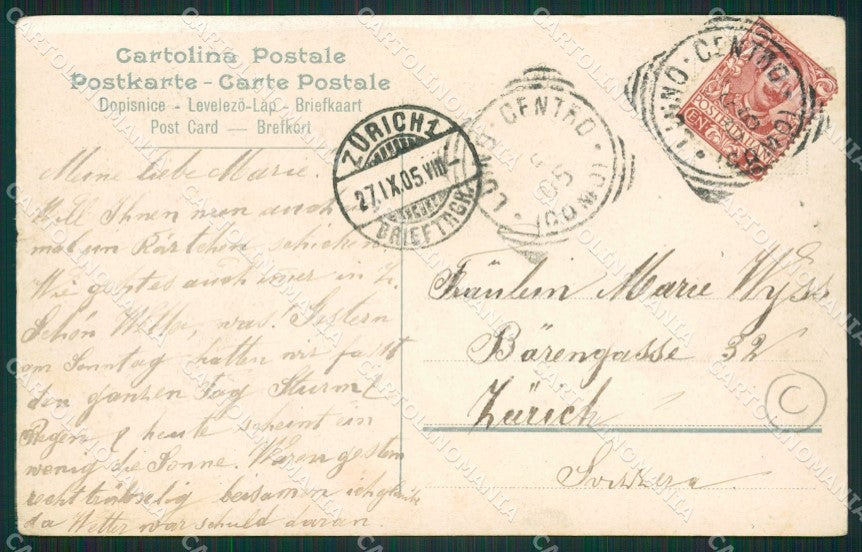 Cartolina Postale
Postkarte - Carte Postale
Dopisnice - Levelezö-Lap - Briefkaart
Post Card — Brefkort
ZÜRICH 1
27.IX.05.VIII
BRIEFTRÄGER
LUINO · CENTRO
05
(COMO)
LUINO · CENTRO
(COMO)
POSTE ITALIANE
Meine liebe Marie.
Will Ihnen nun auch
mal ein Kärtchen schicken.
Wie geht es auch immer in Z.
Schön Wetter, was! Gestern
am Sonntag hatten wir fast
den ganzen Tag Sturm &
Regen & heute scheint ein
wenig die Sonne. Waren gestern
recht trübselig beisammen ich glaube
da Wetter war schuld daran.
Fräulein Marie Wyss
Bärengasse 32
Zürich
Svizzera
C
CARTOLINOMANIA